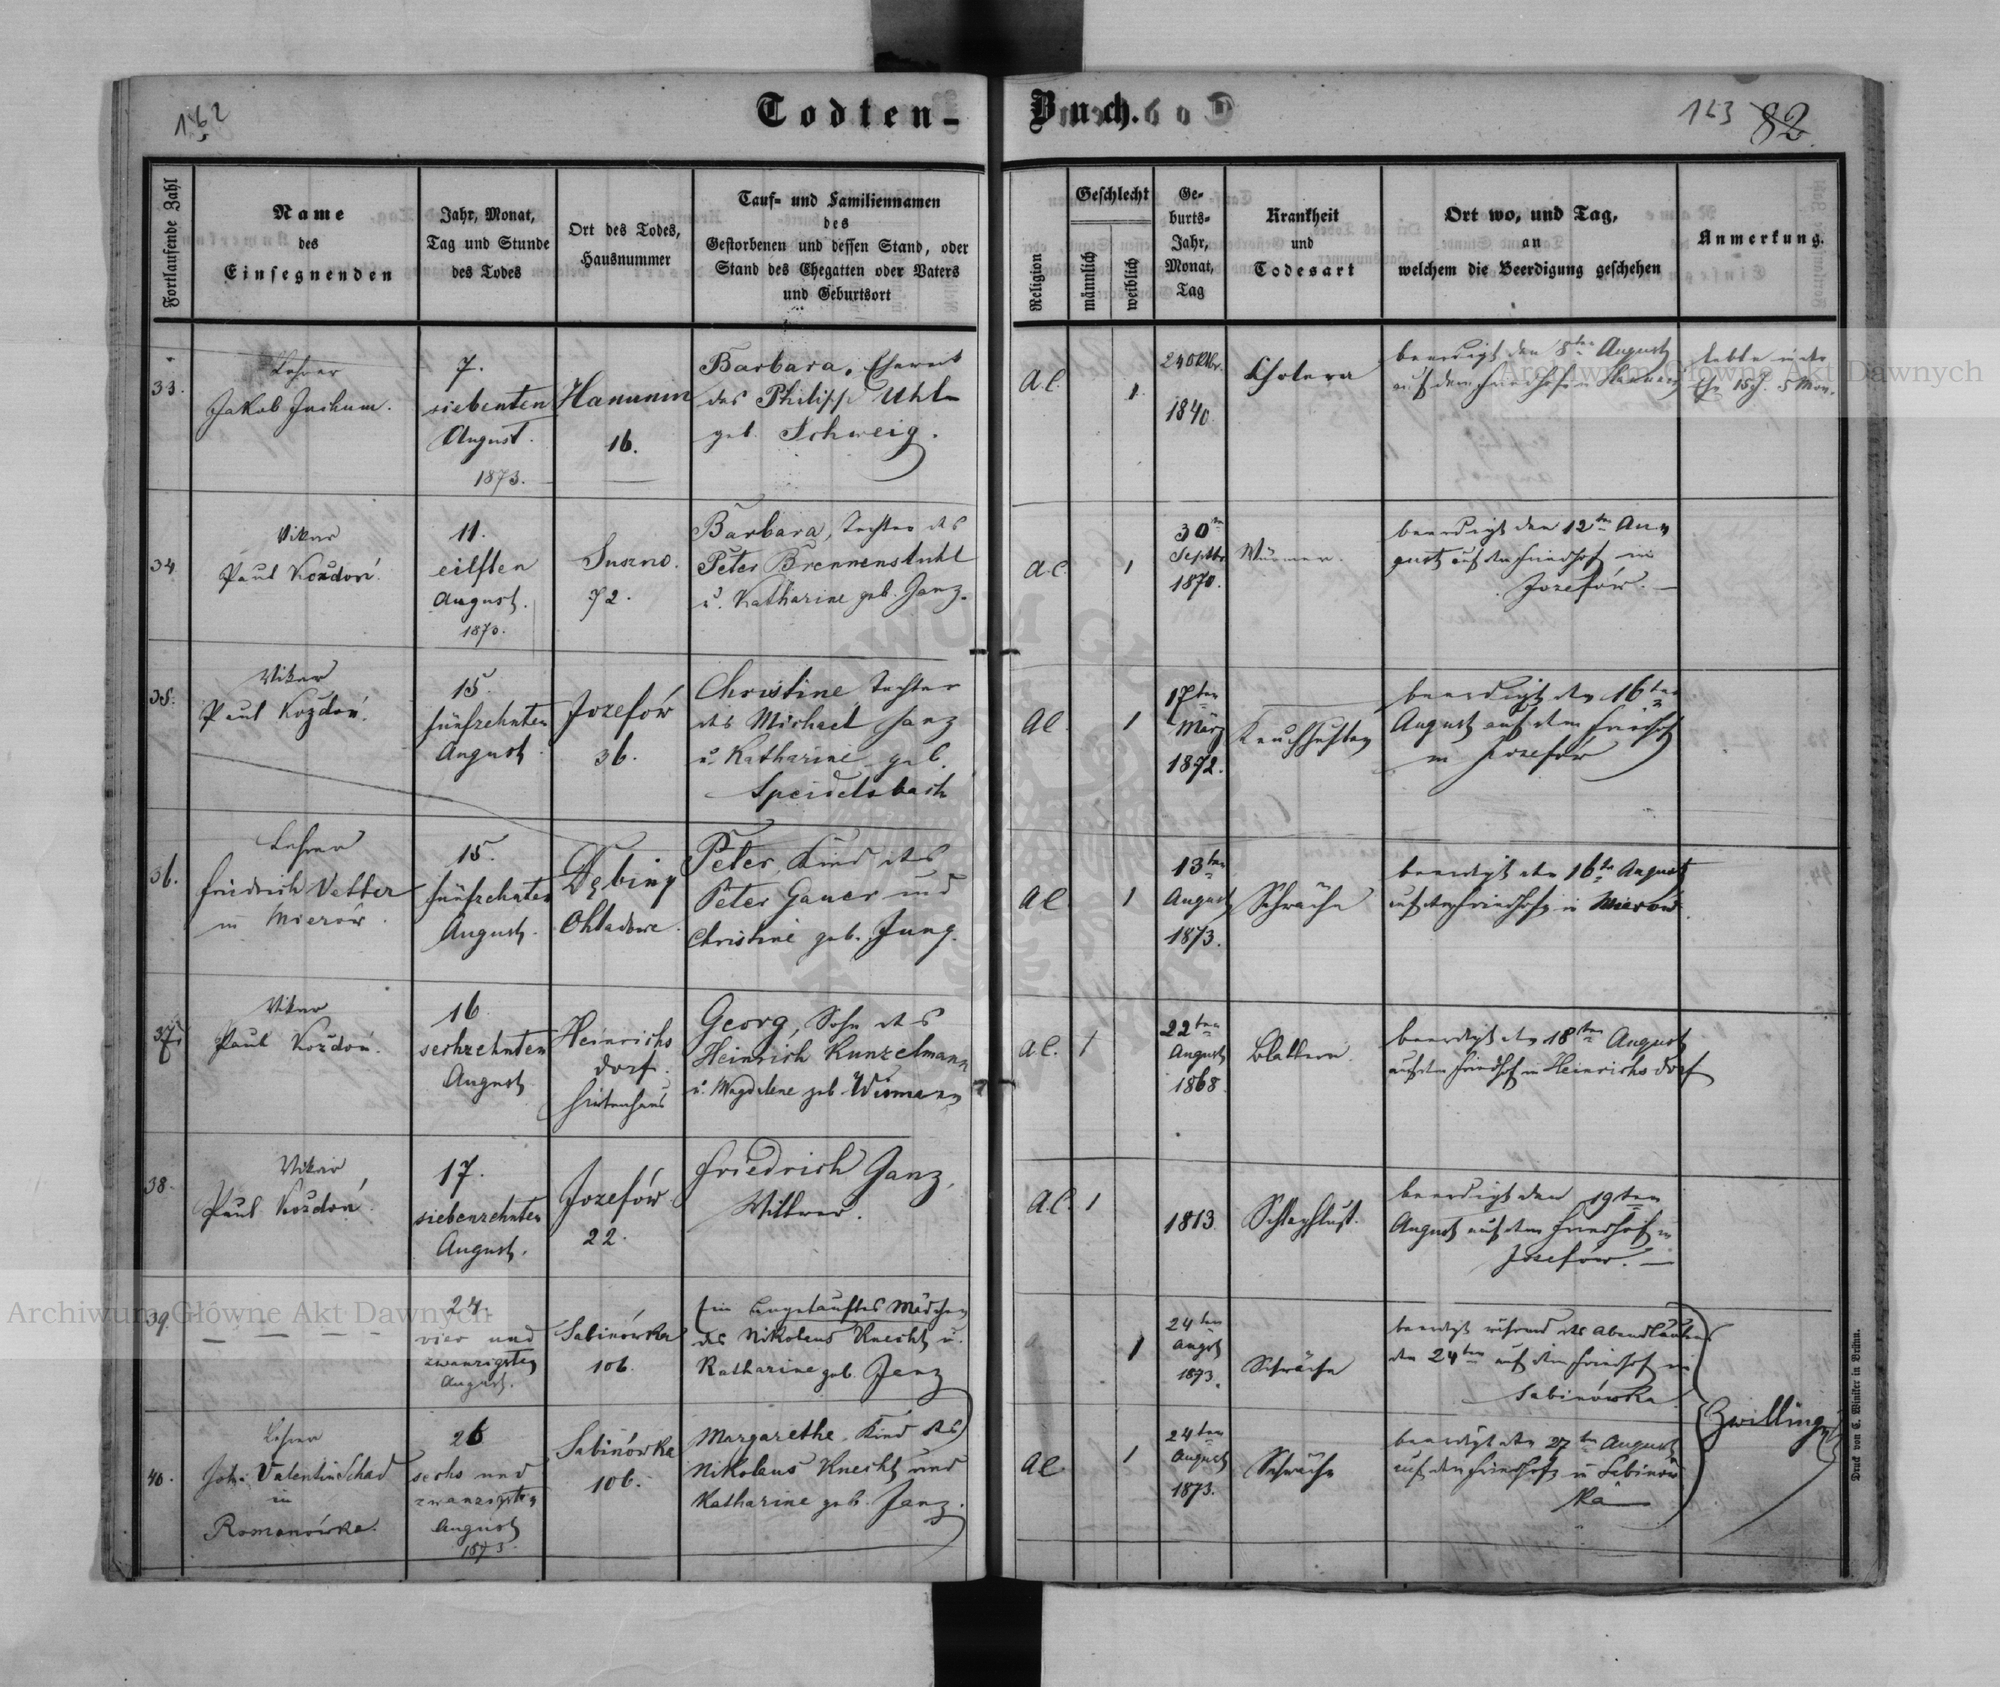 162
Todten-
Buch.
163 82.
Fortlaufende Zahl
Name
des
Einsegnenden
Jahr, Monat,
Tag und Stunde
des Todes
Ort des Todes,
Hausnummer
Tauf- und Familiennamen
des
Gestorbenen und dessen Stand, oder
Stand des Ehegatten oder Vaters
und Geburtsort
Religion
Geschlecht
männlich
weiblich
Ge-
burts-
Jahr,
Monat,
Tag
Krankheit
und
Todesart
Ort wo, und Tag,
an
welchem die Beerdigung geschehen
Anmerkung.
33.
Lehrer
Jakob
7.
siebenten
August.
1873.
Hanunin
16.
Barbara, Eheweib
des Philipp Uhl
geb. Schweig.
A.C.
1.
24 Oktbr.
1840
Cholera
beerdigt den 8ten August
auf dem Friedhofe in
lebte in der
Ehe 15 J. 5 Mon.
34
Vikar
Paul Kozdoń.
11.
eilften
August.
1873.
Suszno.
72.
Barbara, Tochter des
Peter Brennenstuhl
u. Katharine geb. Janz.
A.C.
1
30ten
Septbr
1870.
Würmer.
beerdigt den 12ten Au-
gust auf dem Friedhof in
Jozefów. —
35.
Vikar
Paul Kozdoń.
15.
fünfzehnten
August
Jozefów
36.
Christine Tochter
des Michael Janz
u. Katharine geb.
Speidelsbach
A.C.
1
17ten
März
1872.
Keuchhusten
beerdigt den 16ten
August auf dem Friedhof
in Jozefów
36.
Lehrer
Friedrich Vetter
in Mierów.
15.
fünfzehnten
August.
Dębiny
Ohladow.
Peter, Kind des
Peter Gauer und
Christine geb. Jung.
A.C.
1
13ten
August
1873.
Schwäche
beerdigt den 16ten August
auf dem Friedhofe in Mierów.
37.
Vikar
Paul Kozdoń.
16
sechzehnten
August
Heinrichs
dorf.
Hirtenhaus
Georg, Sohn des
Heinrich Kunzelmann
u. Magdalene geb. Wismann
A.C.
1
22ten
August
1868.
Blattern.
beerdigt den 18ten August
auf dem Friedhof in Heinrichsdorf
38.
Vikar
Paul Kozdoń.
17.
siebenzehnten
August.
Jozefów
22.
Friedrich Janz,
Wittwer.
A.C.
1
1813.
Schlagfluß.
beerdigt den 19ten
August auf dem Friedhof in
Jozefów. —
39.
— — — —
24.
vier und
zwanzigsten
August.
Sabinówka
106.
Ein ungetauftes Mädchen
des Nikolaus Knecht u.
Katharine geb. Janz
1
24ten
Augst
1873.
Schwäche
beerdigt während des Abendläutens
den 24ten auf dem Friedhof in
Sabinówka.
40.
Lehrer
Joh. Valentin Schad
in
Romanówka.
26
sechs und
zwanzigsten
August
1873.
Sabinówka
106.
Margarethe, Kind des
Nikolaus Knecht und
Katharine geb. Janz.
A.C.
1
24ten
August
1873.
Schwäche
beerdigt den 27ten August
auf dem Friedhofe in Sabinów
ka —
Zwillinge
Druck von C. Winiker in Brünn.
Archiwum Główne Akt Dawnych
Archiwum Główne Akt Dawnych